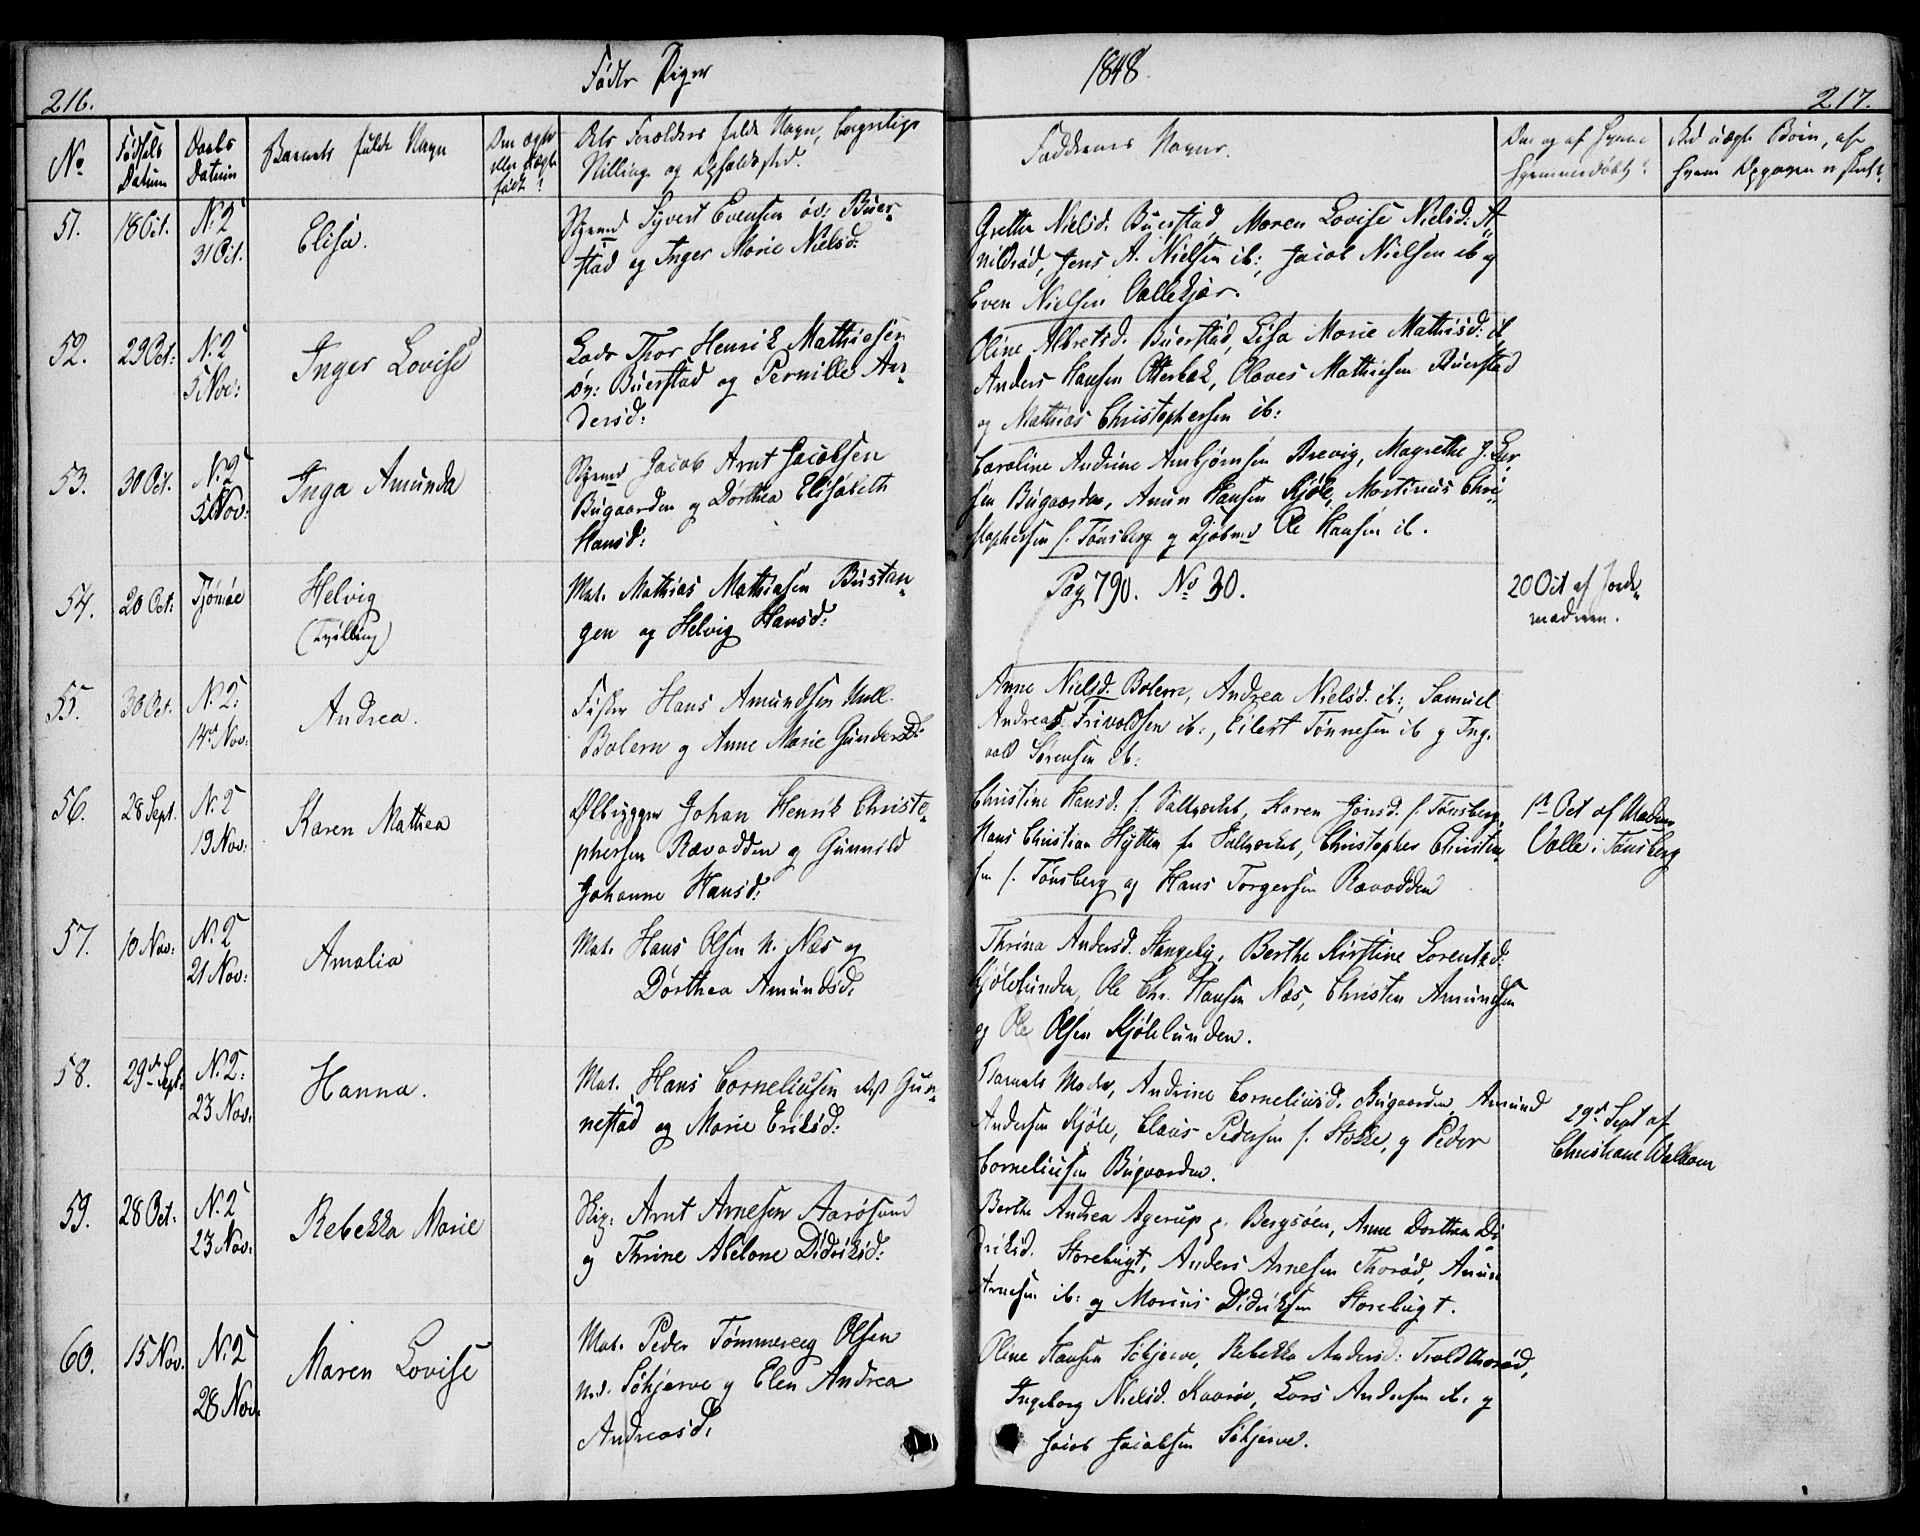 216.
Fødte Piger
1848.
217.
No
Fødsels Datum
Daabs Datum
Barnets fulde Navn
Om ægte eller uægte født?
Dets Forældres fulde Navn, borgerlige
Stilling og Opholdssted.
Faddernes Navne.
Om og af hvem
hjemmedøbt?
Ved uægte Børn, af
hvem Opgaven er skeet?
51.
18 Oct.
N. 2
31 Oct.
Elisa.
Syvert Evensen øv: Buer-
stad og Inger Marie Nielsd:
Grethe Nielsd. Buerstad, Maren Lovise Nielsd: A-
nildrød, Jens A. Nielsen ib:, Jacob Nielsen ib og
Even Nielsen Vallekjær.
52.
29 Oct:
N. 2
5 Nov:
Inger Lovise
Lods Thor Henrik Mathiesen
øv: Buerstad og Pernille An-
dersd:
Oline Albretsd. Buerstad, Lisa Marie Mathisd: ib
Anders Hansen Otterbek, Olaves Mathiesen Buerstad
og Mathias Christophersen ib:
53.
30 Oct.
N. 2
5 Nov:
Inga Amunda
Jacob Arnt Jacobsen
Bugaarden og Dorthea Elisabeth
Hansd:
Caroline Andrine Arnbjørnsen Brevig, Magrethe J. Lar-
sen Bugaarden, Amun Hansen Kjøle, Martinus Chri-
stophersen f. Tønsberg og Ole Hansen ib.
54.
20 Oct:
Tjømøe
Helvig
(Tvilling)
Mat. Mathias Mathiasen Bustan-
gen og Helvig Hansd:
Pag 790. No 30.
20 Oct af Jorde-
madreen.
55.
30 Oct.
N. 2:
14de Nov:
Andrea.
Fisker Hans Amundsen Mell.
Bolern og Anne Marie Gundersd:
Anne Nielsd. Bolern, Andrea Nielsd. ib:, Samuel
Andreas Trivoldsen ib:, Eilert Tønnesen ib og Ing-
vald Sørensen ib:
56.
28 Sept.
N. 2
19 Nov:
Karen Mathea
Ølbrygger Johan Henrik Christo-
phersen Rævodden og Gunnild
Johanne Hansd:
Christine Hansd. f. Valløekel, Karen Jonsd. f. Tønsberg,
Hans Christian Hytten fr Christopher Christen-
sen f. Tønsberg og Hans Torgersen Rævodden
1st Oct af Madam
Valle i Tønsberg
57.
10 Nov:
N. 2
21 Nov:
Amalia
Mat. Hans Olsen n. Næs og
Dorthea Amundsd.
Thrina Andersd. Stangeby, Berthe Kirstine Lorentsd:
Kjølelunden, Ole Chr. Hansen Næs, Christen Amundsen
og Ole Olsen Kjølelunden.
58.
29de Sept.
N. 2:
23 Nov:
Hanna.
Mat. Hans Corneliusen Gun-
nestad og Marie Eriksd:
Barnets Moder, Andrine Corneliusd. Bugaarden, Amund
Andersen Kjøle, Claus Pedersen f. Stokke, og Peder
Corneliusen Bugaarden.
29d Sept af
Christiane Walloen
59.
28 Oct.
N. 2
23 Nov:
Rebekka Marie
Skip: Arnt Arnesen Aarøsund
og Thrine Abelone Didriksd:
Berthe Andrea Agerup p. Bergsøen, Anne Dorthea Di-
driksd. Storebugt, Anders Arnesen Thorød, Amun
Arnesen ib: og Marius Didriksen Storebugt.
60.
15 Nov.
N. 2
28 Nov.
Maren Lovise
Mat. Peder Tømmereeg Olsen
nd. Søkjerve og Elen Andrea
Andreasd.
Oline Hansen Søkjerve, Rebekka Andersd: Trældthorød,
Ingeborg Nielsd. Kaarøe, Lars Andersen ib. og
Jacob Jacobsen Søkjerve.